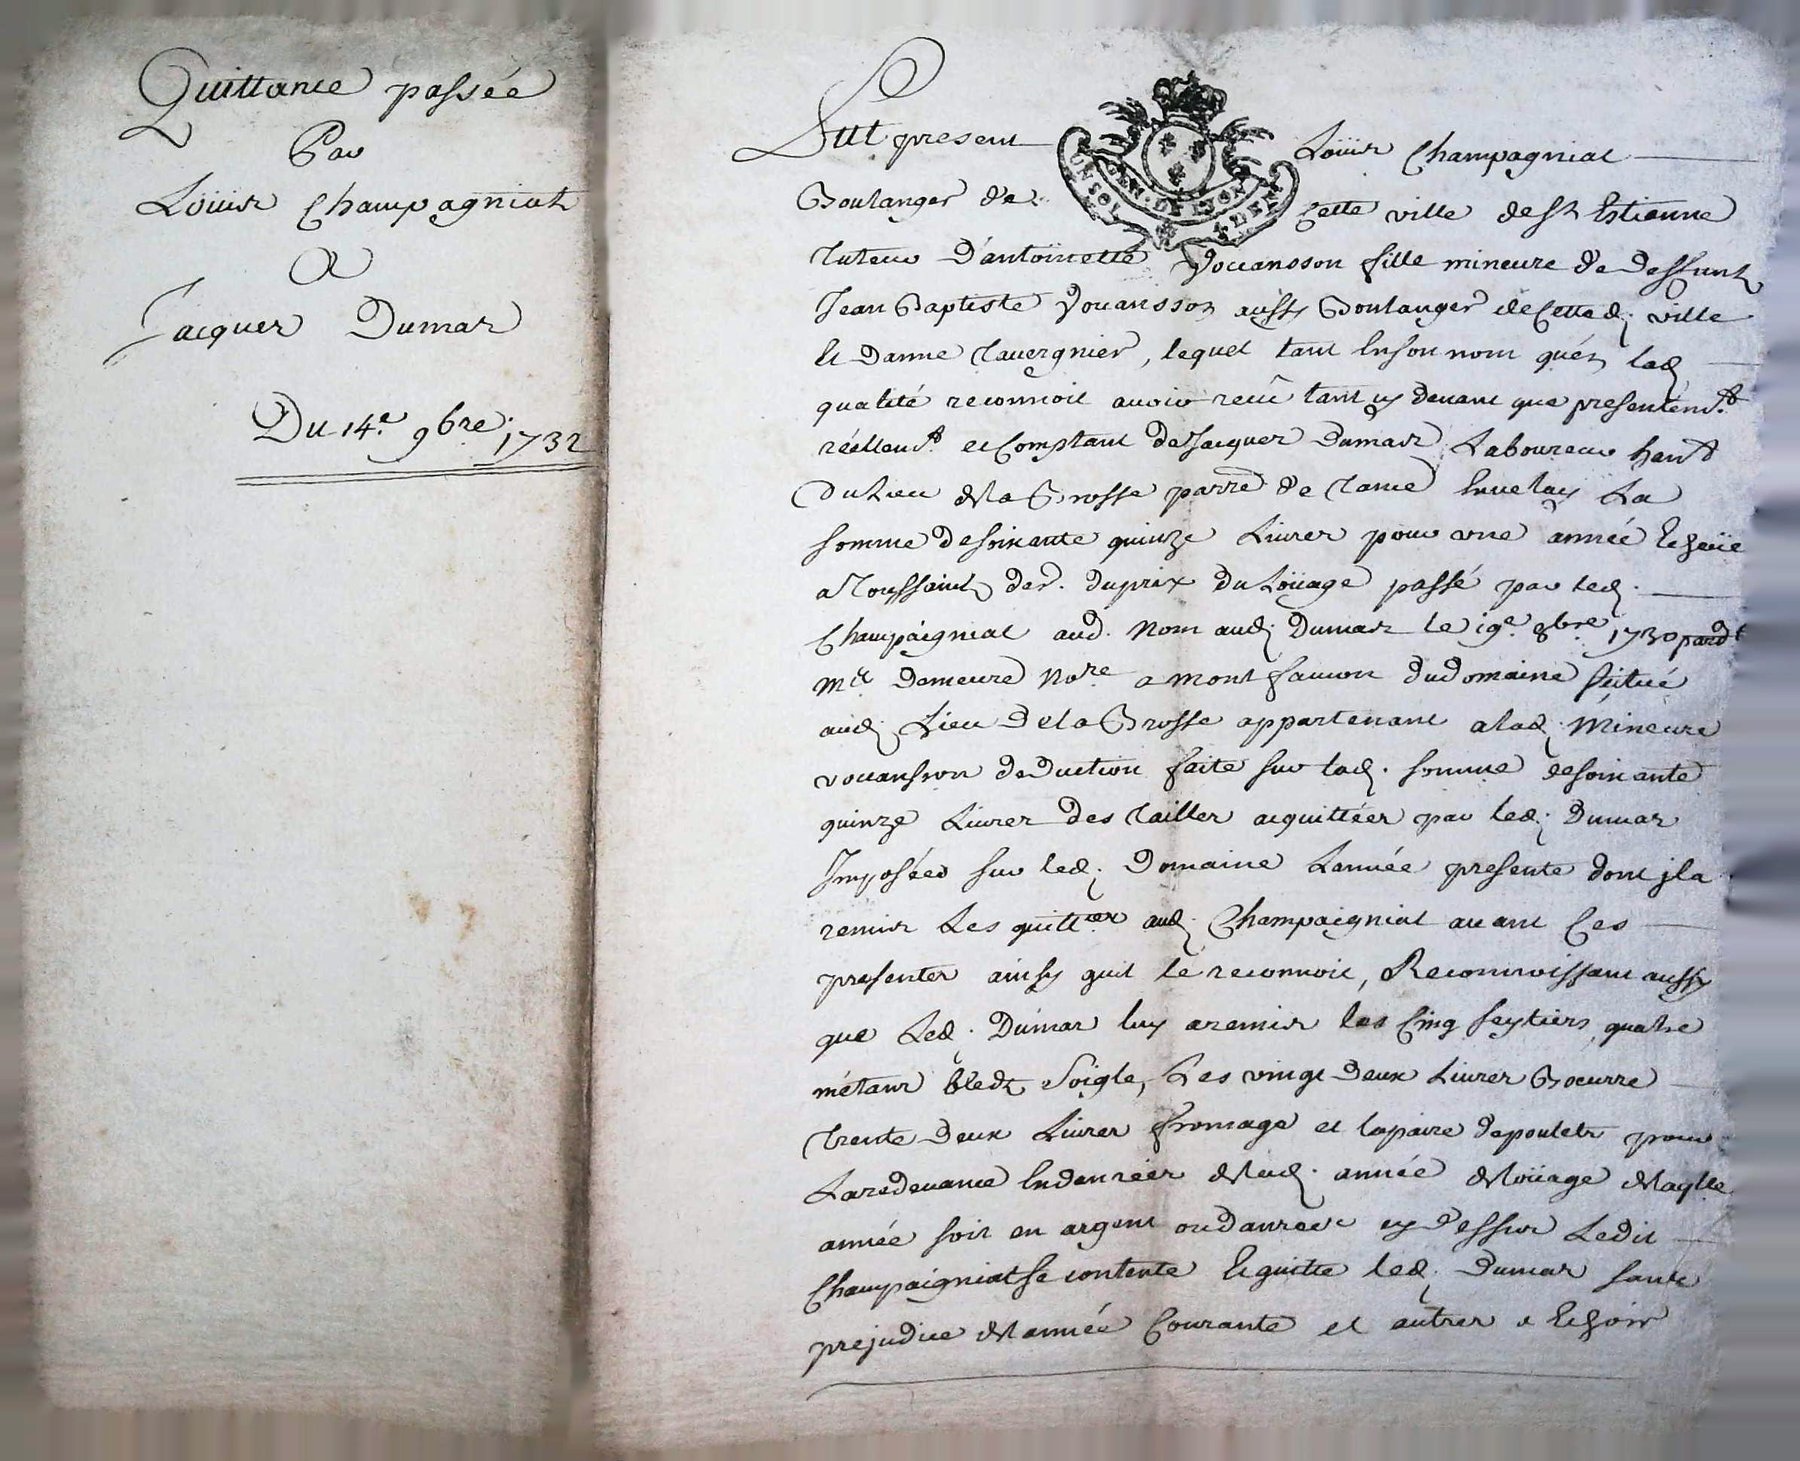 Quittance passée
Par
Loüis Champagniat
A
Jacques Dumas
Du 14.e 9bre. 1732
Fut present Loüis Champagniat
GEN. DE LYON
UN SOL
Boulanger de cette ville de St Estienne
tuteur d'antoinette Vouansson fille mineure de deffunt
Jean Baptiste Vouansson aussy Boulanger de cette d. ville
et danne tavergnier, lequel tant en son nom qu'en lad.
qualité reconnoit avoir reçû tant cy devant que presentemt.
réellemt. et comptant de Jacques Dumas Laboureur habt.
du Lieu de la Brosse parre. de tance en velay La
somme de soixante quinze Livres pour une année echeüe
a toussaint der. du prix du Loüage passé par led.
Champaigniat aud. nom aud. Dumas le 19e. 8bre. 1730 pardt.
Me. Demeure nore. a montfaucon du domaine situé
aud. Lieu de la Brosse appartenant a lad. Mineure
vouansson deduction faite sur lad. somme de soixante
quinze Livres des tailles acquittées par led. Dumas
Imposées sur led. Domaine L'année presente dont jl a
remis Les quittces aud. Champaigniat avant Ces
presentes ainsy quil le reconnoit, Reconnoissant aussy
que Led. Dumas luy a remis les Cinq seytiers quatre
métans bled Soigle, Les vingt deux Livres Beurre
trente deux Livres fromage et la paire de poulets pour
La redevance en denrées de lad. année de loüage de laqlle
année soit en argent ou danrées cy dessus Ledit
Champaigniat se contente et quitte led. Dumas sans
prejudice de l'année Courante et autres a echoir